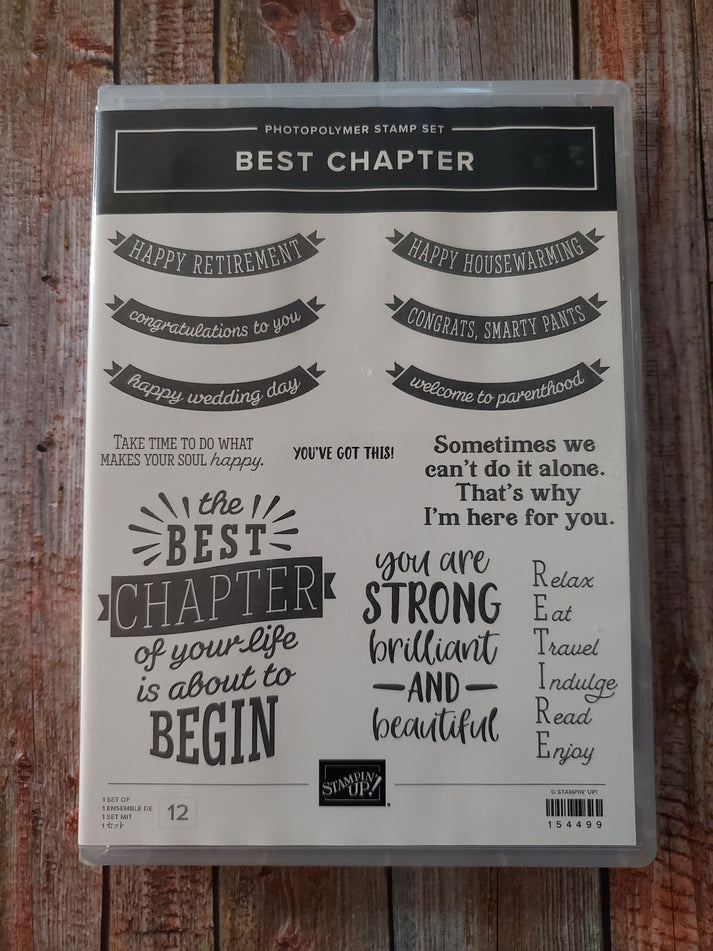 PHOTOPOLYMER STAMP SET
BEST CHAPTER
HAPPY RETIREMENT
HAPPY HOUSEWARMING
congratulations to you
CONGRATS, SMARTY PANTS
happy wedding day
welcome to parenthood
TAKE TIME TO DO WHAT
MAKES YOUR SOUL happy.
YOU'VE GOT THIS!
Sometimes we
can't do it alone.
That's why
I'm here for you.
the
BEST
CHAPTER
of your life
is about to
BEGIN
you are
STRONG
brilliant
—AND—
beautiful
Relax
Eat
Travel
Indulge
Read
Enjoy
1 SET OF
1 ENSEMBLE DE
1 SET MIT
1 セット
12
STAMPIN' UP!®
© STAMPIN' UP!
154499